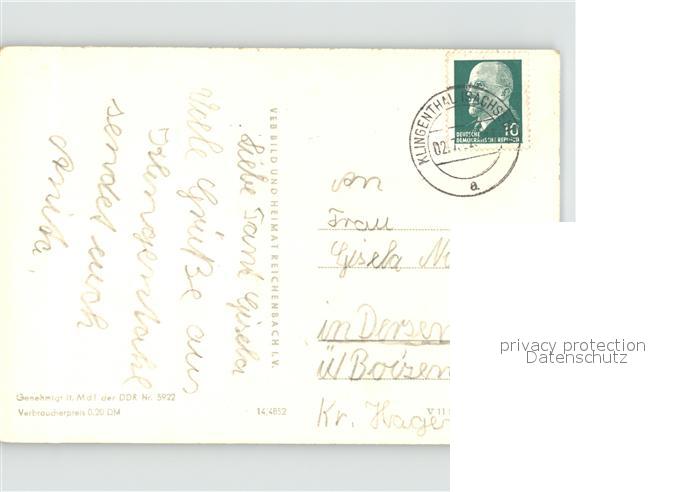 Liebe Tant Gisela
Viele Grüße aus
sendet euch
Anita
VEB BILD UND HEIMAT REICHENBACH I.V.
Genehmigt lt. MdI der DDR Nr. 5922
Verbraucherpreis 0,20 DM
14/4852
KLINGENTHAL (SACHS
02.
a
10
DEUTSCHE
DEMOKRATISCHE REPUBLIK
An
Frau
Gisela
in Dersen
ü/Boizen
Kr. Hager
V 11
privacy protection
Datenschutz